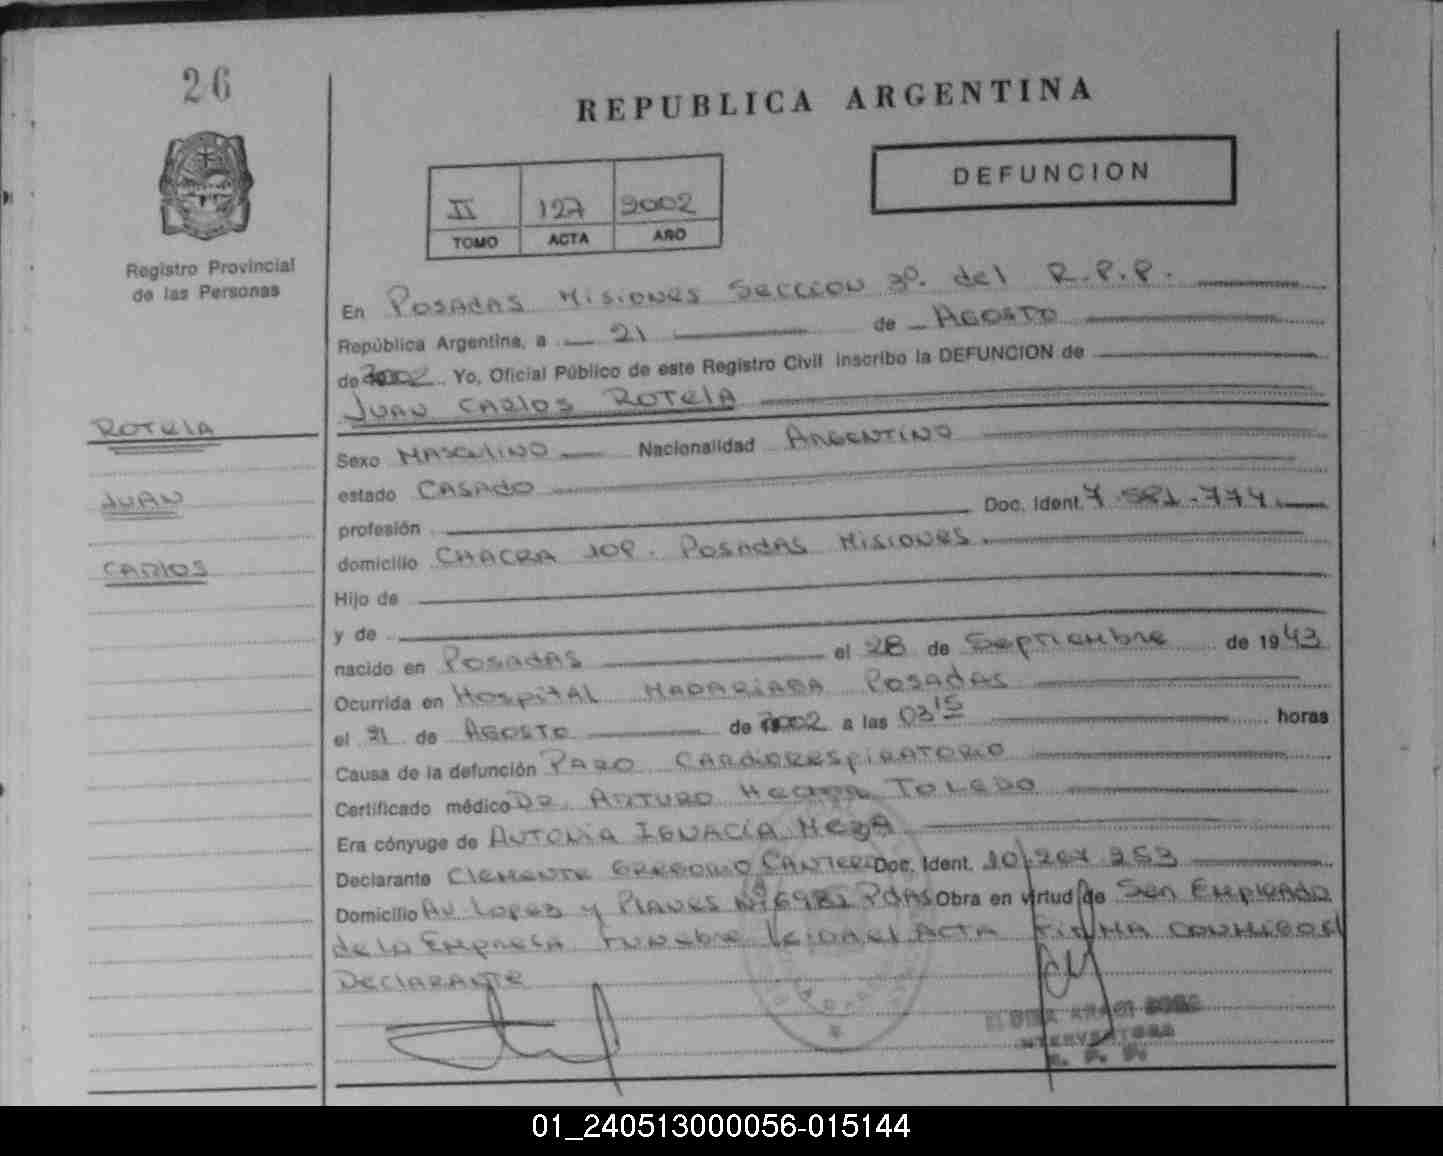 26
REPUBLICA ARGENTINA
DEFUNCION
II 127 2002
TOMO ACTA AÑO
Registro Provincial
de las Personas
En Posadas Misiones Seccion 3º. del R.P.P.
República Argentina, a 21 de Agosto
de 2002. Yo, Oficial Público de este Registro Civil inscribo la DEFUNCION de
Juan Carlos Rotela
Rotela
Juan
Carlos
Sexo Masculino Nacionalidad Argentino
estado Casado
profesión Doc. Ident. 7.581.774
domicilio Chacra 102. Posadas Misiones.
Hijo de
y de
nacido en Posadas el 28 de Septiembre de 1943
Ocurrida en Hospital Madariaga Posadas
el 21 de Agosto de 2002 a las 03 15 horas
Causa de la defunción Paro Cardiorrespiratorio
Certificado médico Dr. Arturo Hector Toledo
Era cónyuge de Antonia Ignacia Meza
Declarante Clemente Gregorio Doc. Ident. 10.267.253
Domicilio Av Lopez y Planes Nº Pdas Obra en virtud de Ser Empleado
de la Empresa Funebre leida el Acta Firma conmigo el
Declarante
INTERVENTORA
R. P. P.
01_240513000056-015144